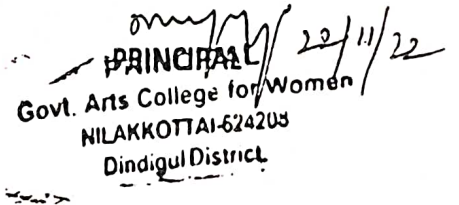 22/11/22
PRINCIPAL
Govt. Arts College for Women
NILAKKOTTAI-624208
Dindigul District.